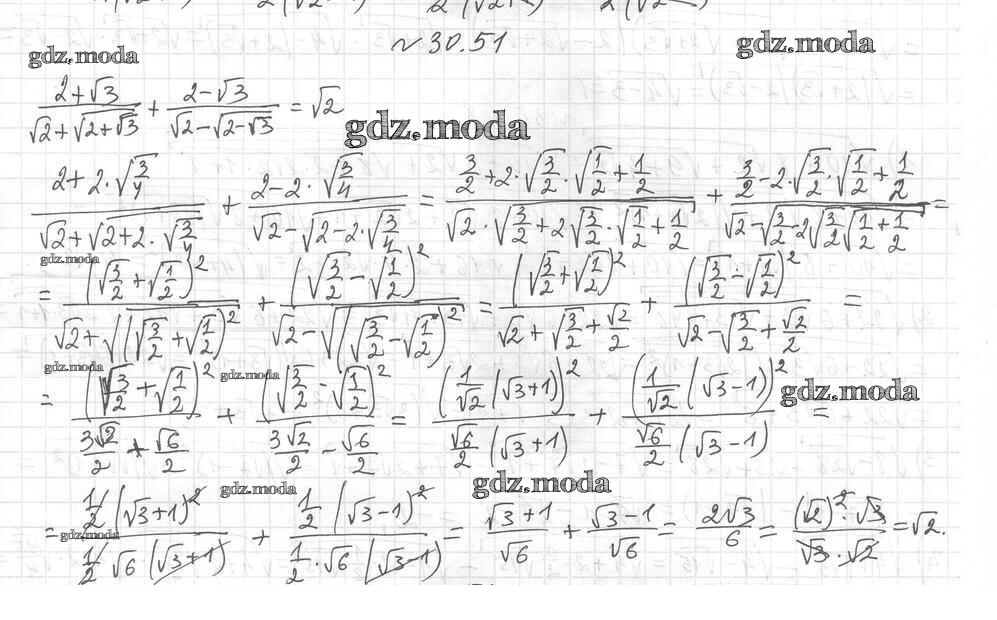 № 30.51
gdz.moda gdz.moda
(2+√3)/(√2+√(2+√3)) + (2-√3)/(√2-√(2-√3)) = √2
gdz.moda
(2+2·√(3/4))/(√2+√(2+2·√(3/4))) + (2-2·√(3/4))/(√2-√(2-2·√(3/4))) = (3/2+2·√(3/2)·√(1/2)+1/2)/(√2·√(3/2+2√(3/2)·√(1/2)+1/2)) + (3/2-2·√(3/2)·√(1/2)+1/2)/(√2-√(3/2-2√(3/2)√(1/2)+1/2)) =
gdz.moda
= (√(3/2)+√(1/2))²/(√2+√((√(3/2)+√(1/2))²)) + (√(3/2)-√(1/2))²/(√2-√((√(3/2)-√(1/2))²)) = (√(3/2)+√(1/2))²/(√2+√(3/2)+√2/2) + (√(3/2)-√(1/2))²/(√2-√(3/2)+√2/2) =
gdz.moda gdz.moda gdz.moda
= (√(3/2)+√(1/2))²/(3√2/2+√6/2) + (√(3/2)-√(1/2))²/(3√2/2-√6/2) = (1/√2(√3+1))²/(√6/2(√3+1)) + (1/√2(√3-1))²/(√6/2(√3-1)) =
gdz.moda gdz.moda
gdz.moda
= (1/2(√3+1)²)/(1/2√6·(√3+1)) + (1/2(√3-1)²)/(1/2·√6(√3-1)) = (√3+1)/√6 + (√3-1)/√6 = 2√3/6 = ((√2)²·√3)/(√3·√2) = √2.